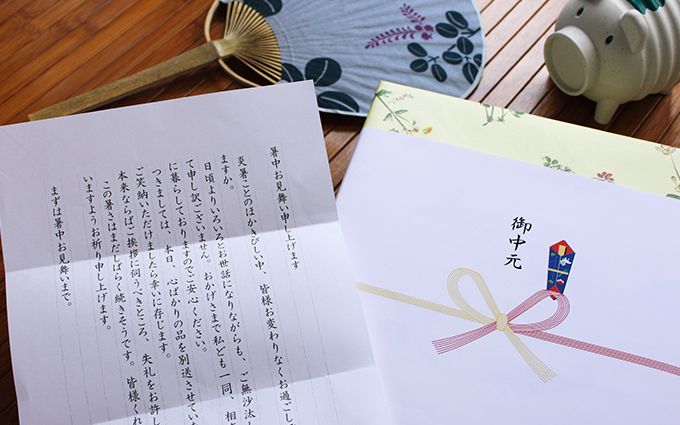 暑中お見舞い申し上げます
炎暑ことのほかきびしい中、皆様お変わりなくお過ごし
ますか。
日頃よりいろいろとお世話になりながらも、ご無沙汰
て申し訳ございません。おかげさまで私ども一同、相
に暮らしておりますのでご安心ください。
つきましては、本日、心ばかりの品を別送させてい
ご笑納いただけましたら幸いに存じます。
本来ならばご挨拶に伺うべきところ、失礼をお許し
この暑さはまだしばらく続きそうです。皆様くれ
いますようお祈り申し上げます。
まずは暑中お見舞いまで。
御中元